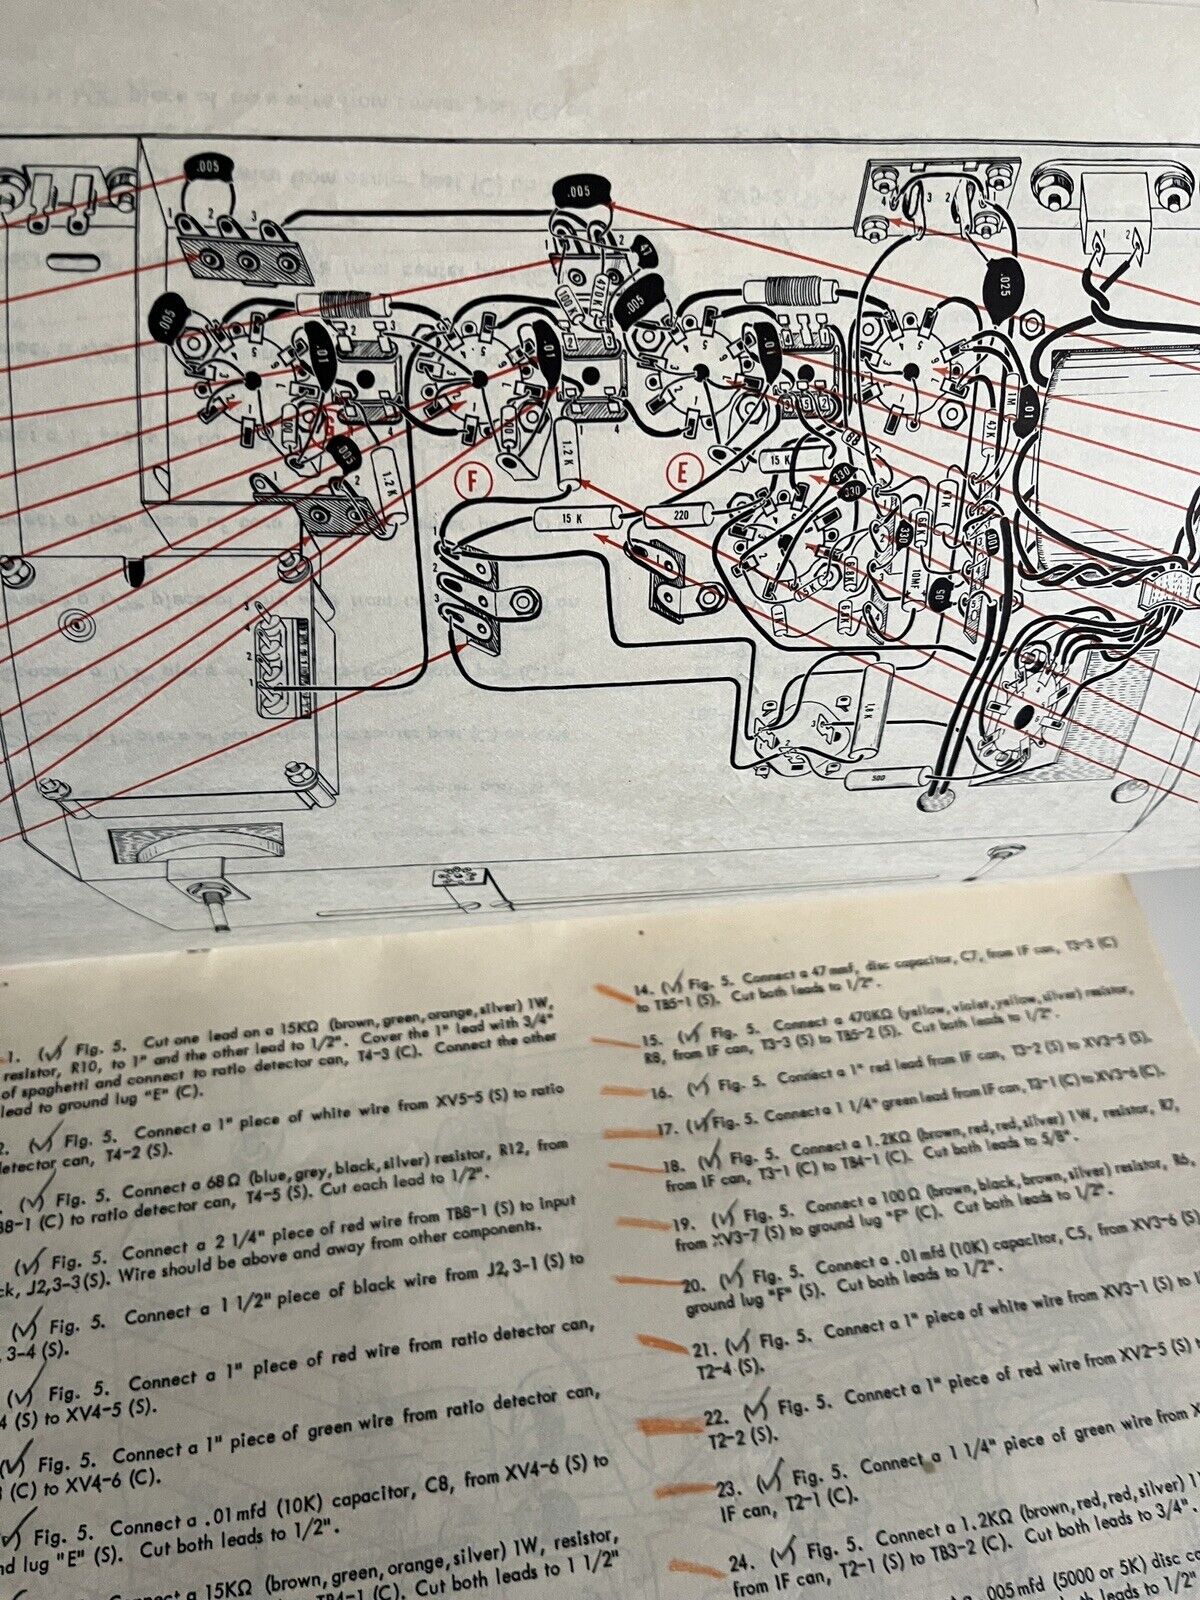 .005
1 2 3
.005
1 2
47
.005
100K
470K
4 3 2 1
1 2
.025
.005
.01
.01
.01
.01
1M
47K
100
100
.005
1.2 K
1.2 K
F
E
15 K
15 K
220
68
330
330
47K
6.8K
330
10MF
.05
1.5K
6.8K
1K
1K
500
1. (✓) Fig. 5. Cut one lead on a 15KΩ (brown,green,orange,silver) 1W,
resistor, R10, to 1" and the other lead to 1/2". Cover the 1" lead with 3/4"
of spaghetti and connect to ratio detector can, T4-3 (C). Connect the other
lead to ground lug "E" (C).
2. (✓) Fig. 5. Connect a 1" piece of white wire from XV5-5 (S) to ratio
detector can, T4-2 (S).
(✓) Fig. 5. Connect a 68Ω (blue,grey,black,silver) resistor, R12, from
B8-1 (C) to ratio detector can, T4-5 (S). Cut each lead to 1/2".
(✓) Fig. 5. Connect a 2 1/4" piece of red wire from TB8-1 (S) to input
ck, J2,3-3(S). Wire should be above and away from other components.
(✓) Fig. 5. Connect a 1 1/2" piece of black wire from J2,3-1 (S) to
3-4 (S).
(✓) Fig. 5. Connect a 1" piece of red wire from ratio detector can,
4 (S) to XV4-5 (S).
(✓) Fig. 5. Connect a 1" piece of green wire from ratio detector can,
(C) to XV4-6 (C).
(✓) Fig. 5. Connect a .01mfd (10K) capacitor, C8, from XV4-6 (S) to
nd lug "E" (S). Cut both leads to 1/2".
Connect a 15KΩ (brown,green,orange,silver) 1W, resistor,
TB4-1 (C). Cut both leads to 1 1/2"
14. (✓) Fig. 5. Connect a 47 mmf, disc capacitor, C7, from IF can, T3-3 (C)
to TB5-1 (S). Cut both leads to 1/2".
15. (✓) Fig. 5. Connect a 470KΩ (yellow,violet,yellow,silver) resistor,
R8, from IF can, T3-3 (S) to TB5-2 (S). Cut both leads to 1/2".
16. (✓) Fig. 5. Connect a 1" red lead from IF can, T3-2 (S) to XV3-5 (S).
17. (✓) Fig. 5. Connect a 1 1/4" green lead from IF can, T3-1 (C) to XV3-6 (C).
18. (✓) Fig. 5. Connect a 1.2KΩ (brown,red,red,silver) 1W, resistor, R7,
from IF can, T3-1 (C) to TB4-1 (C). Cut both leads to 5/8".
19. (✓) Fig. 5. Connect a 100Ω (brown,black,brown,silver) resistor, R6,
from XV3-7 (S) to ground lug "F" (C). Cut both leads to 1/2".
20. (✓) Fig. 5. Connect a .01mfd (10K) capacitor, C5, from XV3-6 (S)
ground lug "F" (S). Cut both leads to 1/2".
21. (✓) Fig. 5. Connect a 1" piece of white wire from XV3-1 (S) to
T2-4 (S).
22. (✓) Fig. 5. Connect a 1" piece of red wire from XV2-5 (S)
T2-2 (S).
23. (✓) Fig. 5. Connect a 1 1/4" piece of green wire from
IF can, T2-1 (C).
24. (✓) Fig. 5. Connect a 1.2KΩ (brown,red,red,silver)
from IF can, T2-1 (S) to TB3-2 (C). Cut both leads to 3/4".
.005mfd (5000 or 5K) disc
leads to 1/2"